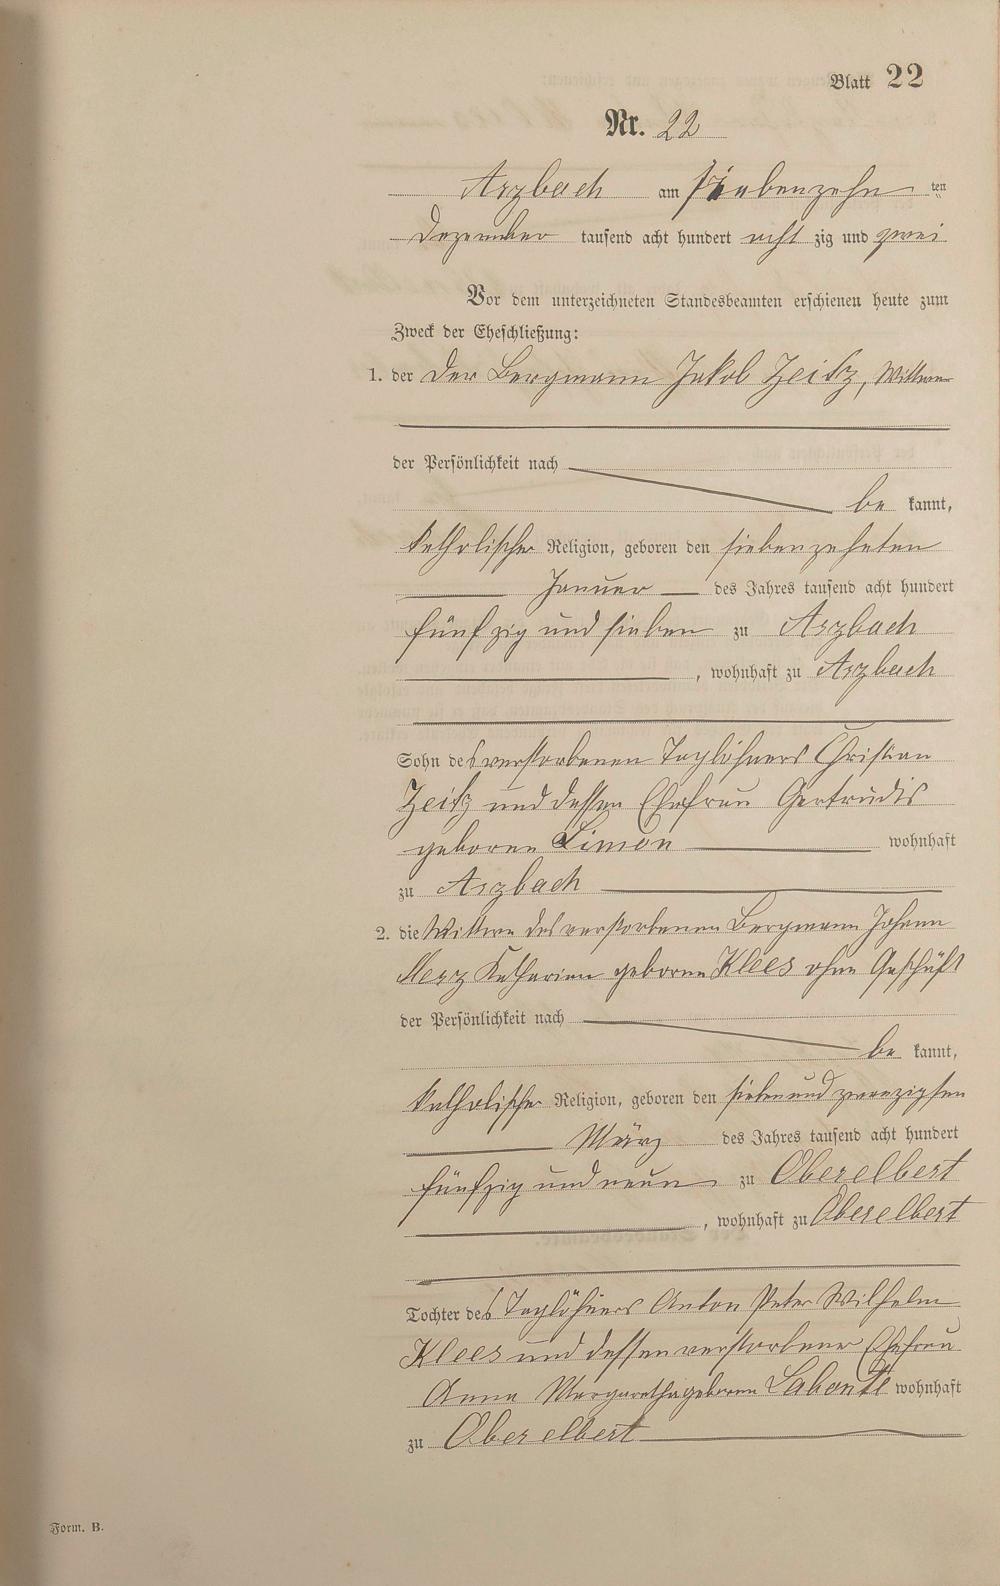 Blatt 22
Nr. 22
Arzbach am siebenzehn ten
Dezember tausend acht hundert acht zig und zwei
Vor dem unterzeichneten Standesbeamten erschienen heute zum
Zweck der Eheschließung:
1. der Der Bergmann Jakob Zeitz, Wittwer
der Persönlichkeit nach
be kannt,
katholischer Religion, geboren den siebenzehnten
Januar des Jahres tausend acht hundert
fünfzig und sieben zu Arzbach
, wohnhaft zu Arzbach
Sohn des verstorbenen Taglöhners Christian
Zeitz und dessen Ehefrau Gertrudis
geborne Simon wohnhaft
zu Arzbach
2. die Wittwe des verstorbenen Bergmann Johann
Merz Katharina geborne Klees ohne Geschäft
der Persönlichkeit nach
be kannt,
katholischer Religion, geboren den sieben und zwanzigsten
März des Jahres tausend acht hundert
fünfzig und neun zu Oberelbert
, wohnhaft zu Oberelbert
Tochter des Taglöhners Anton Peter Wilhelm
Klees und dessen verstorbener Ehefrau
Anna Margaretha geborenen wohnhaft
zu Oberelbert
Form. B.